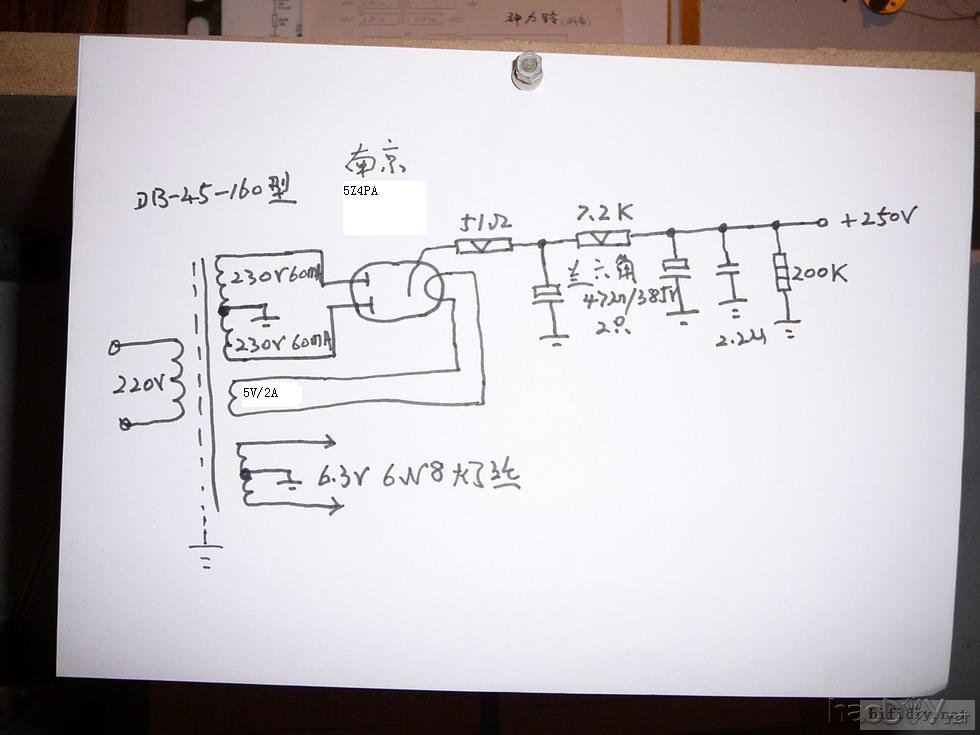 南京
DB-45-160型
5Z4PA
51Ω
7.2K
+250V
230V 60mA
兰六角
47μ/385V
2只
200K
230V 60mA
2.2μ
220V
5V/2A
6.3V 6N8灯丝
hifidiy.net